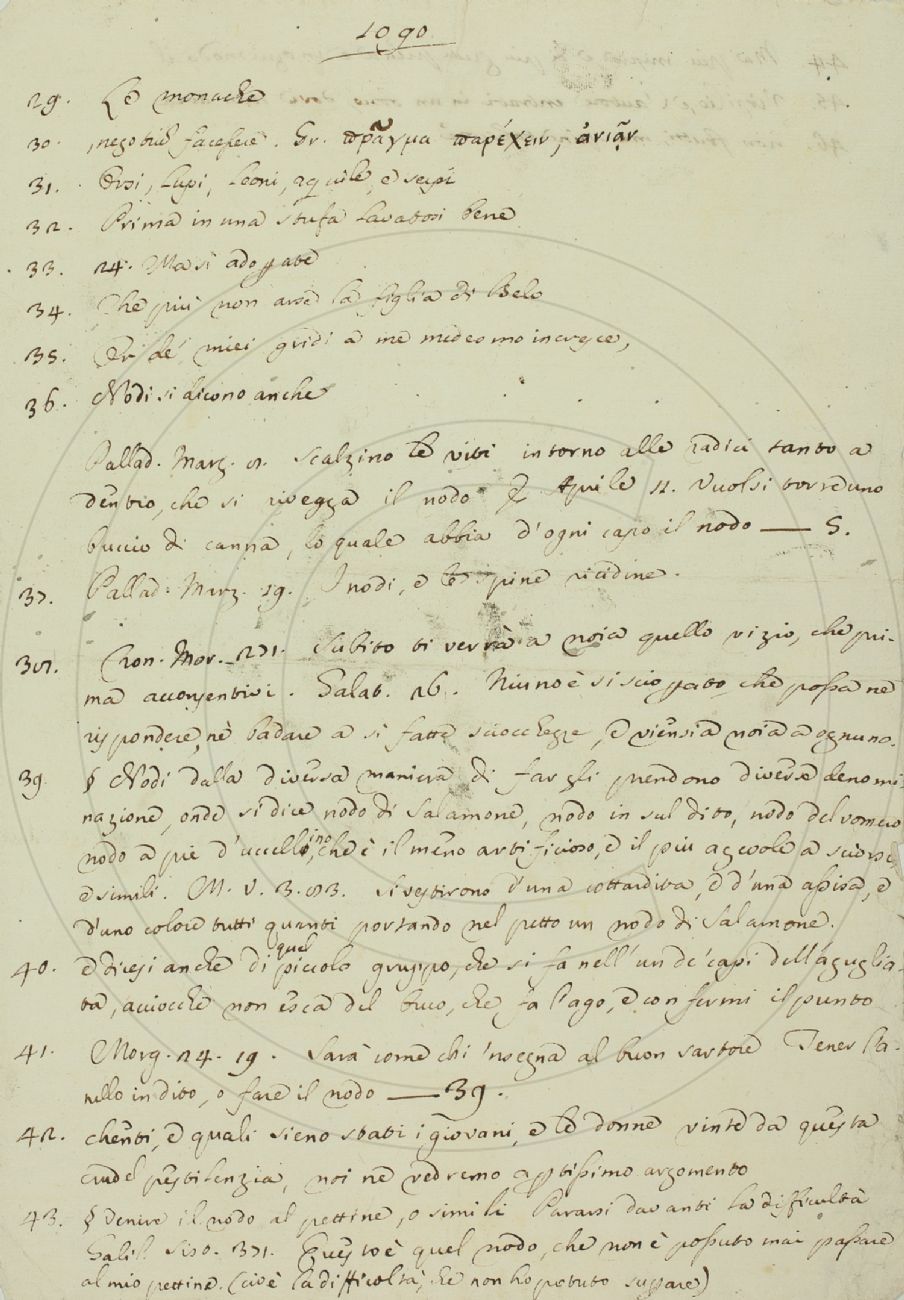 1090
29. Le monache
30. negotiũ facessere. Gr. πρᾶγμα παρέχειν, ἀνιᾶν
31. Orsi, Lupi, Leoni, aquile, e serpi
32. Prima in una stufa lavatosi bene
33. 24. Masi adoppate
34. Che più non arse la figlia di Belo
35. de' miei gridi a me medesmo incresce,
36. Nodi si dicono anche
Pallad. Marz. Scalzino le viti intorno alle radici tanto a
dentro, che si rivegga il nodo Aprile 11. Vuolsi torre uno
buccio di canna, lo quale abbia d'ogni capo il nodo — S.
37. Pallad. Marz. 19. I nodi, e le spine ricidine.
38. Cron. Mor. 271. Subito ti verrà a noia quello vizio, che pri-
ma acconsentivi. Galat. 26. Niuno è sì scioperato che possa nè
rispondere, nè badare a sì fatte sciocchezze, e viensia noia a ognuno.
39 § Nodi dalla diversa maniera di fargli prendono diverse denomi-
nazione, onde si dice nodo di Salamone, nodo in sul dito, nodo del vomero
nodo a piè d'uccellino, che è il meno artificioso, e il più agevole a sciorsi,
e simili. M. V. 3. 83. si vestirono d'una cottardita, e d'una assisa, e
d'uno colore tutti quanti portando nel petto un nodo di Salamone.
40. e dicesi anche di quel piccolo gruppo, che si fa nell'un de' capi dell'aguglia-
ta, acciocchè non esca del buco, che fa l'ago, e con fermi il punto
41. Morg. 24. 19. Sarà come chi 'nsegna al buon sartore Tener l'a-
nello in dito, o fare il nodo — 39.
42. chenti, e quali sieno stati i giovani, e le donne vinte da questa
crudel pestilenzia, noi ne vedremo apptissimo argomento
43. § Venire il nodo al pettine, o simili Pararsi davanti la difficultà
Galil. Sist. 371. Questo è quel nodo, che non è possuto mai passare
al mio pettine. (cioè la difficoltà, che non ho potuto superare)